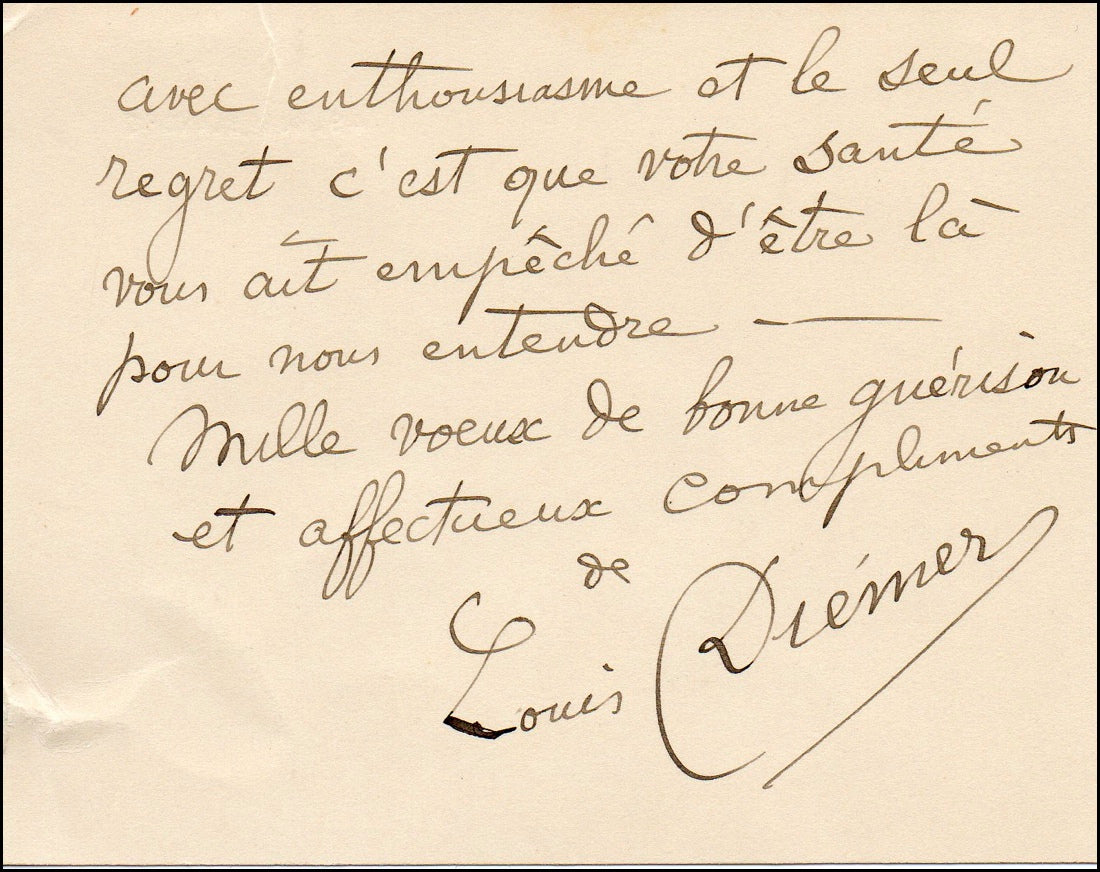 avec enthousiasme et le seul
regret c'est que votre santé
vous ait empêché d'être là
pour nous entendre —
Mille voeux de bonne guérison
et affectueux compliments
de
Louis Diémer